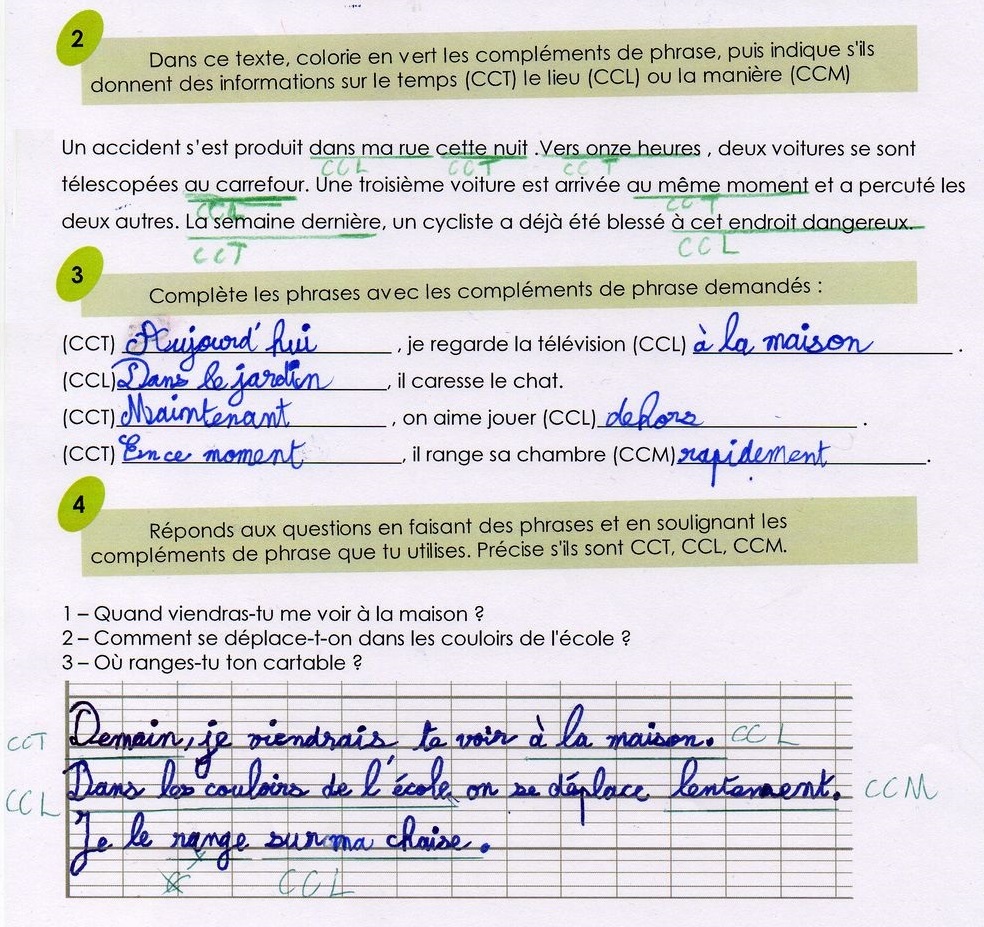 2
Dans ce texte, colorie en vert les compléments de phrase, puis indique s'ils
donnent des informations sur le temps (CCT) le lieu (CCL) ou la manière (CCM)
Un accident s'est produit dans ma rue cette nuit .Vers onze heures , deux voitures se sont
CCL CCT CCT
télescopées au carrefour. Une troisième voiture est arrivée au même moment et a percuté les
CCL CCT
deux autres. La semaine dernière, un cycliste a déjà été blessé à cet endroit dangereux.
CCT CCL
3
Complète les phrases avec les compléments de phrase demandés :
(CCT) Aujourd'hui , je regarde la télévision (CCL) à la maison .
(CCL) Dans le jardin , il caresse le chat.
(CCT) Maintenant , on aime jouer (CCL) dehors .
(CCT) En ce moment , il range sa chambre (CCM) rapidement .
4
Réponds aux questions en faisant des phrases et en soulignant les
compléments de phrase que tu utilises. Précise s'ils sont CCT, CCL, CCM.
1 – Quand viendras-tu me voir à la maison ?
2 – Comment se déplace-t-on dans les couloirs de l'école ?
3 – Où ranges-tu ton cartable ?
CCT Demain, je viendrais te voir à la maison. CCL
CCL Dans les couloirs de l'école on se déplace lentement. CCM
Je le range sur ma chaise.
CCL